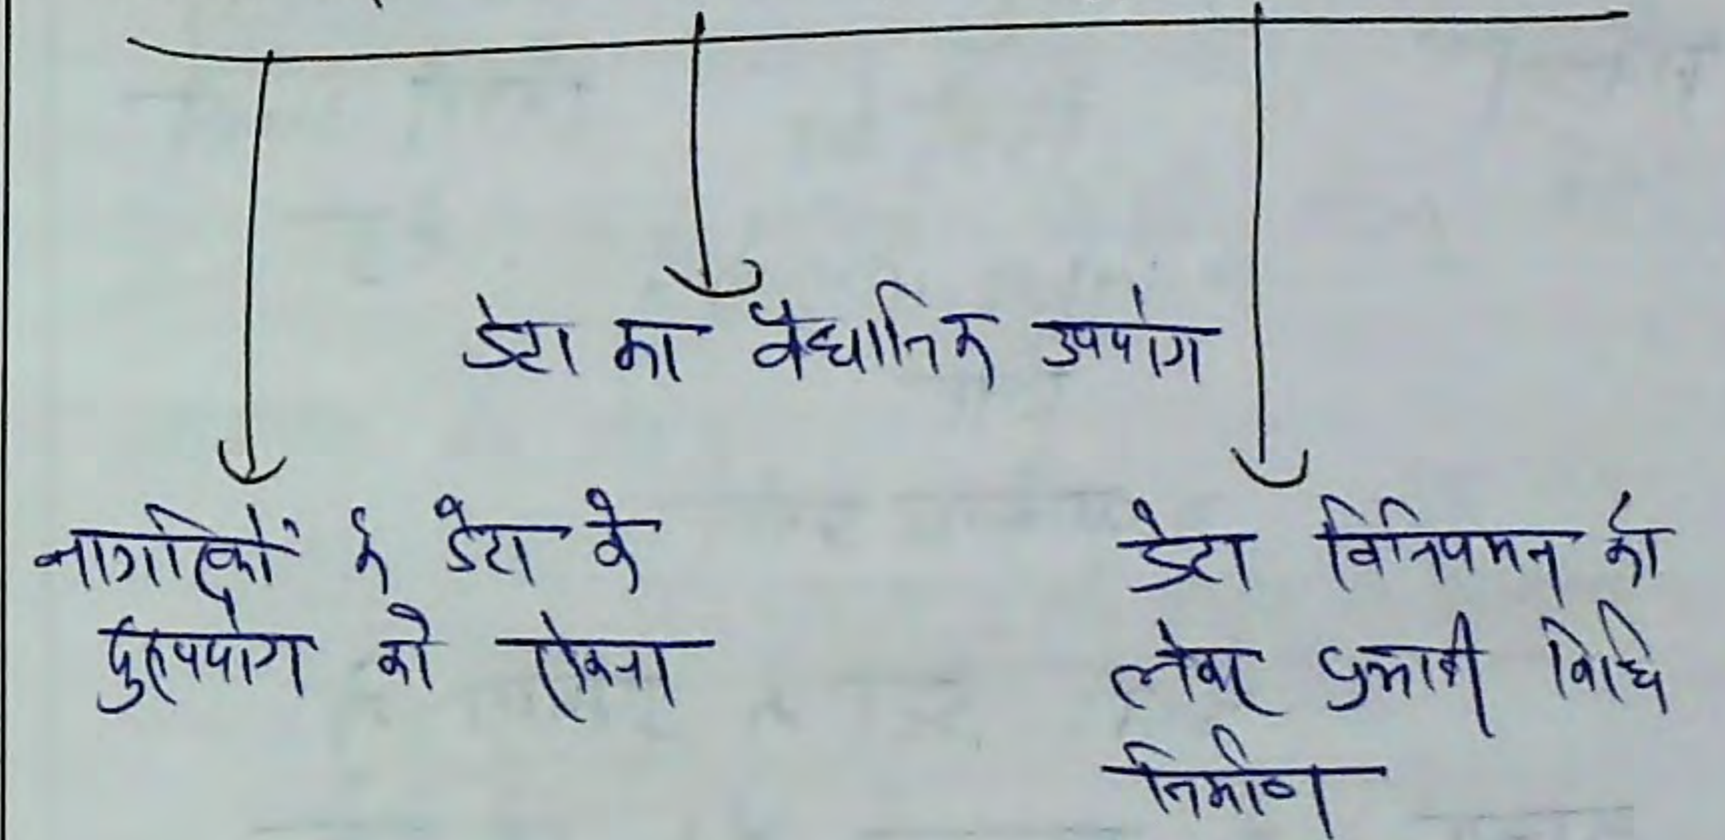 डेटा का वैधानिक उपयोग
नागरिकों के डेटा के
दुरुपयोग को रोकना
डेटा विनियमन को
लेकर प्रभावी विधि
निर्माण